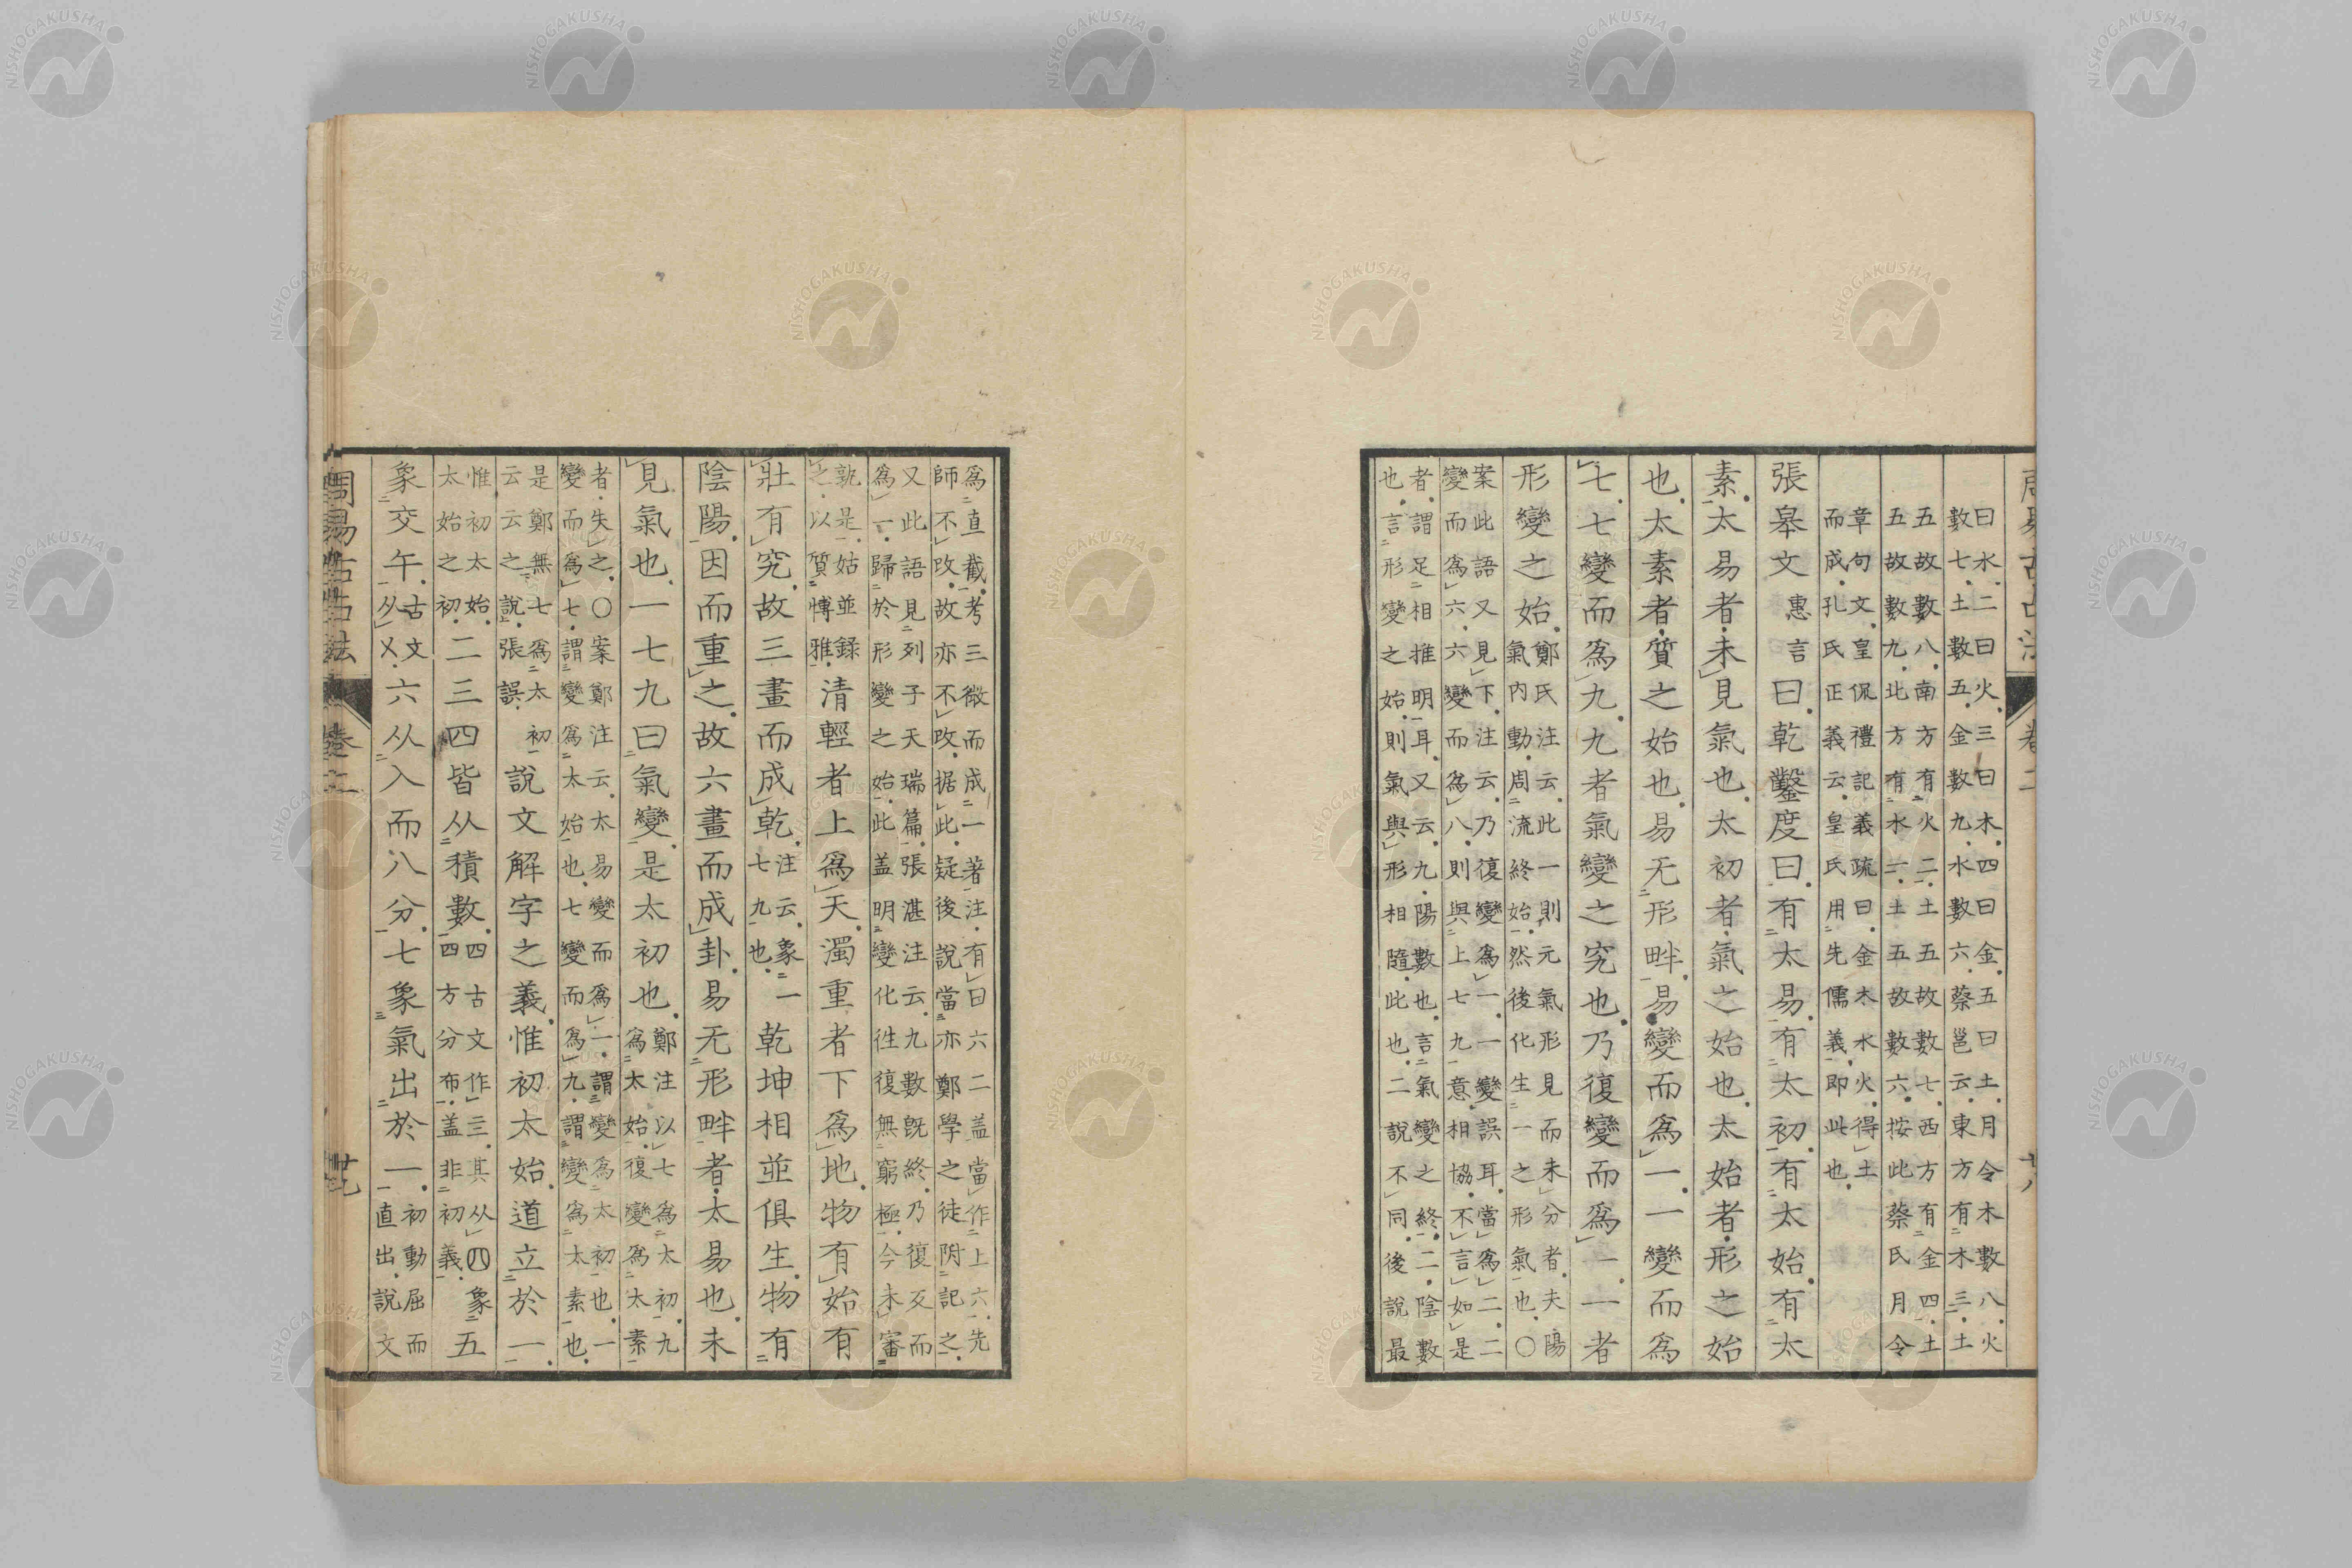 曰水二曰火三曰木四曰金五曰土月令木數八火
數七土數五金數九水數六蔡邕云東方有木三土
五故數八南方有火二土五故數七西方有金四土
五故數九北方有水一土五故數六按此蔡氏月令
章句文皇侃禮記義疏曰金木水火得土
而成孔氏正義云皇氏用先儒義即此也
張皋文惠言曰乾鑿度曰有太易有太初有太始有太
素太易者未見氣也太初者氣之始也太始者形之始
也太素者質之始也易无形畔易變而爲一一變而爲
七七變而爲九九者氣變之究也乃復變而爲一一者
形變之始
鄭氏注云此一則元氣形見而未分者夫陽
氣內動周流終始然後化生一之形氣也〇
案此語又見下注云乃復變爲一一變誤耳當爲二二
變而爲六六變而爲八則與上七九意相協不言如是
者謂足相推明耳又云九陽數也言氣變之終二陰數
也言形變之始則氣與形相隨此也二說不同後說最
爲直截考三微而成一著注有曰六二盖當作上六先
師不改故亦不改据此疑後說當亦鄭學之徒附記之
又此語見列子天瑞篇張湛注云九數既終乃復反而
爲一歸於形變之始此盖明變化徃復無窮極今未審
孰是姑並錄
之以質博雅
清輕者上爲天濁重者下爲地物有始有
壯有究故三畫而成乾
注云象一
七九也
乾坤相並俱生物有
陰陽因而重之故六畫而成卦易无形畔者太易也未
見氣也一七九曰氣變是太初也
鄭注以七爲太初九
爲太始復變爲太素
者失之〇案鄭注云太易變而爲一謂變爲太初也一
變而爲七謂變爲太始也七變而爲九謂變爲太素也
是鄭無七爲太初
云云之說張誤
說文解字之義惟初太始道立於一
惟初太始
太始之初
二三四皆从積數
四古文作亖其从四象
四方分布盖非初義
五
象交午
古文
从乂
六从入而八分七象氣出於一
初動屈而
直出說文
周易古占法 卷二